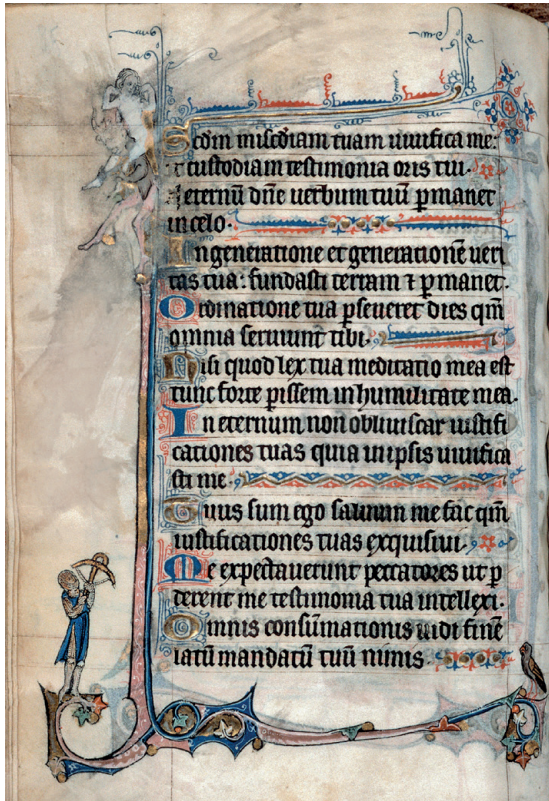 Scd̄m miẜcd̄iam tuam uiuifica me:
⁊ custodiam testimonia oris tui.
In eternū dn̄e uerbum tuū ꝑmanet
in celo.
In generatione et generationē ueri
tas tua: fundasti terram ⁊ ꝑmanet.
Ordinatione tua ꝑseueret dies qm̄
omnia seruiunt tibi.
Nisi quod lex tua meditatio mea est
tunc forte ꝑissem in humilitate mea.
In eternum non obliuiscar iustifi
cationes tuas quia in ipsis uiuifica
sti me.
Tuus sum ego saluum me fac qm̄
iustificationes tuas exquisiui.
Me expectauerunt peccatores ut ꝑ
derent me testimonia tua intellexi.
Omnis consūmationis uidi finē
latū mandatū tuū nimis.